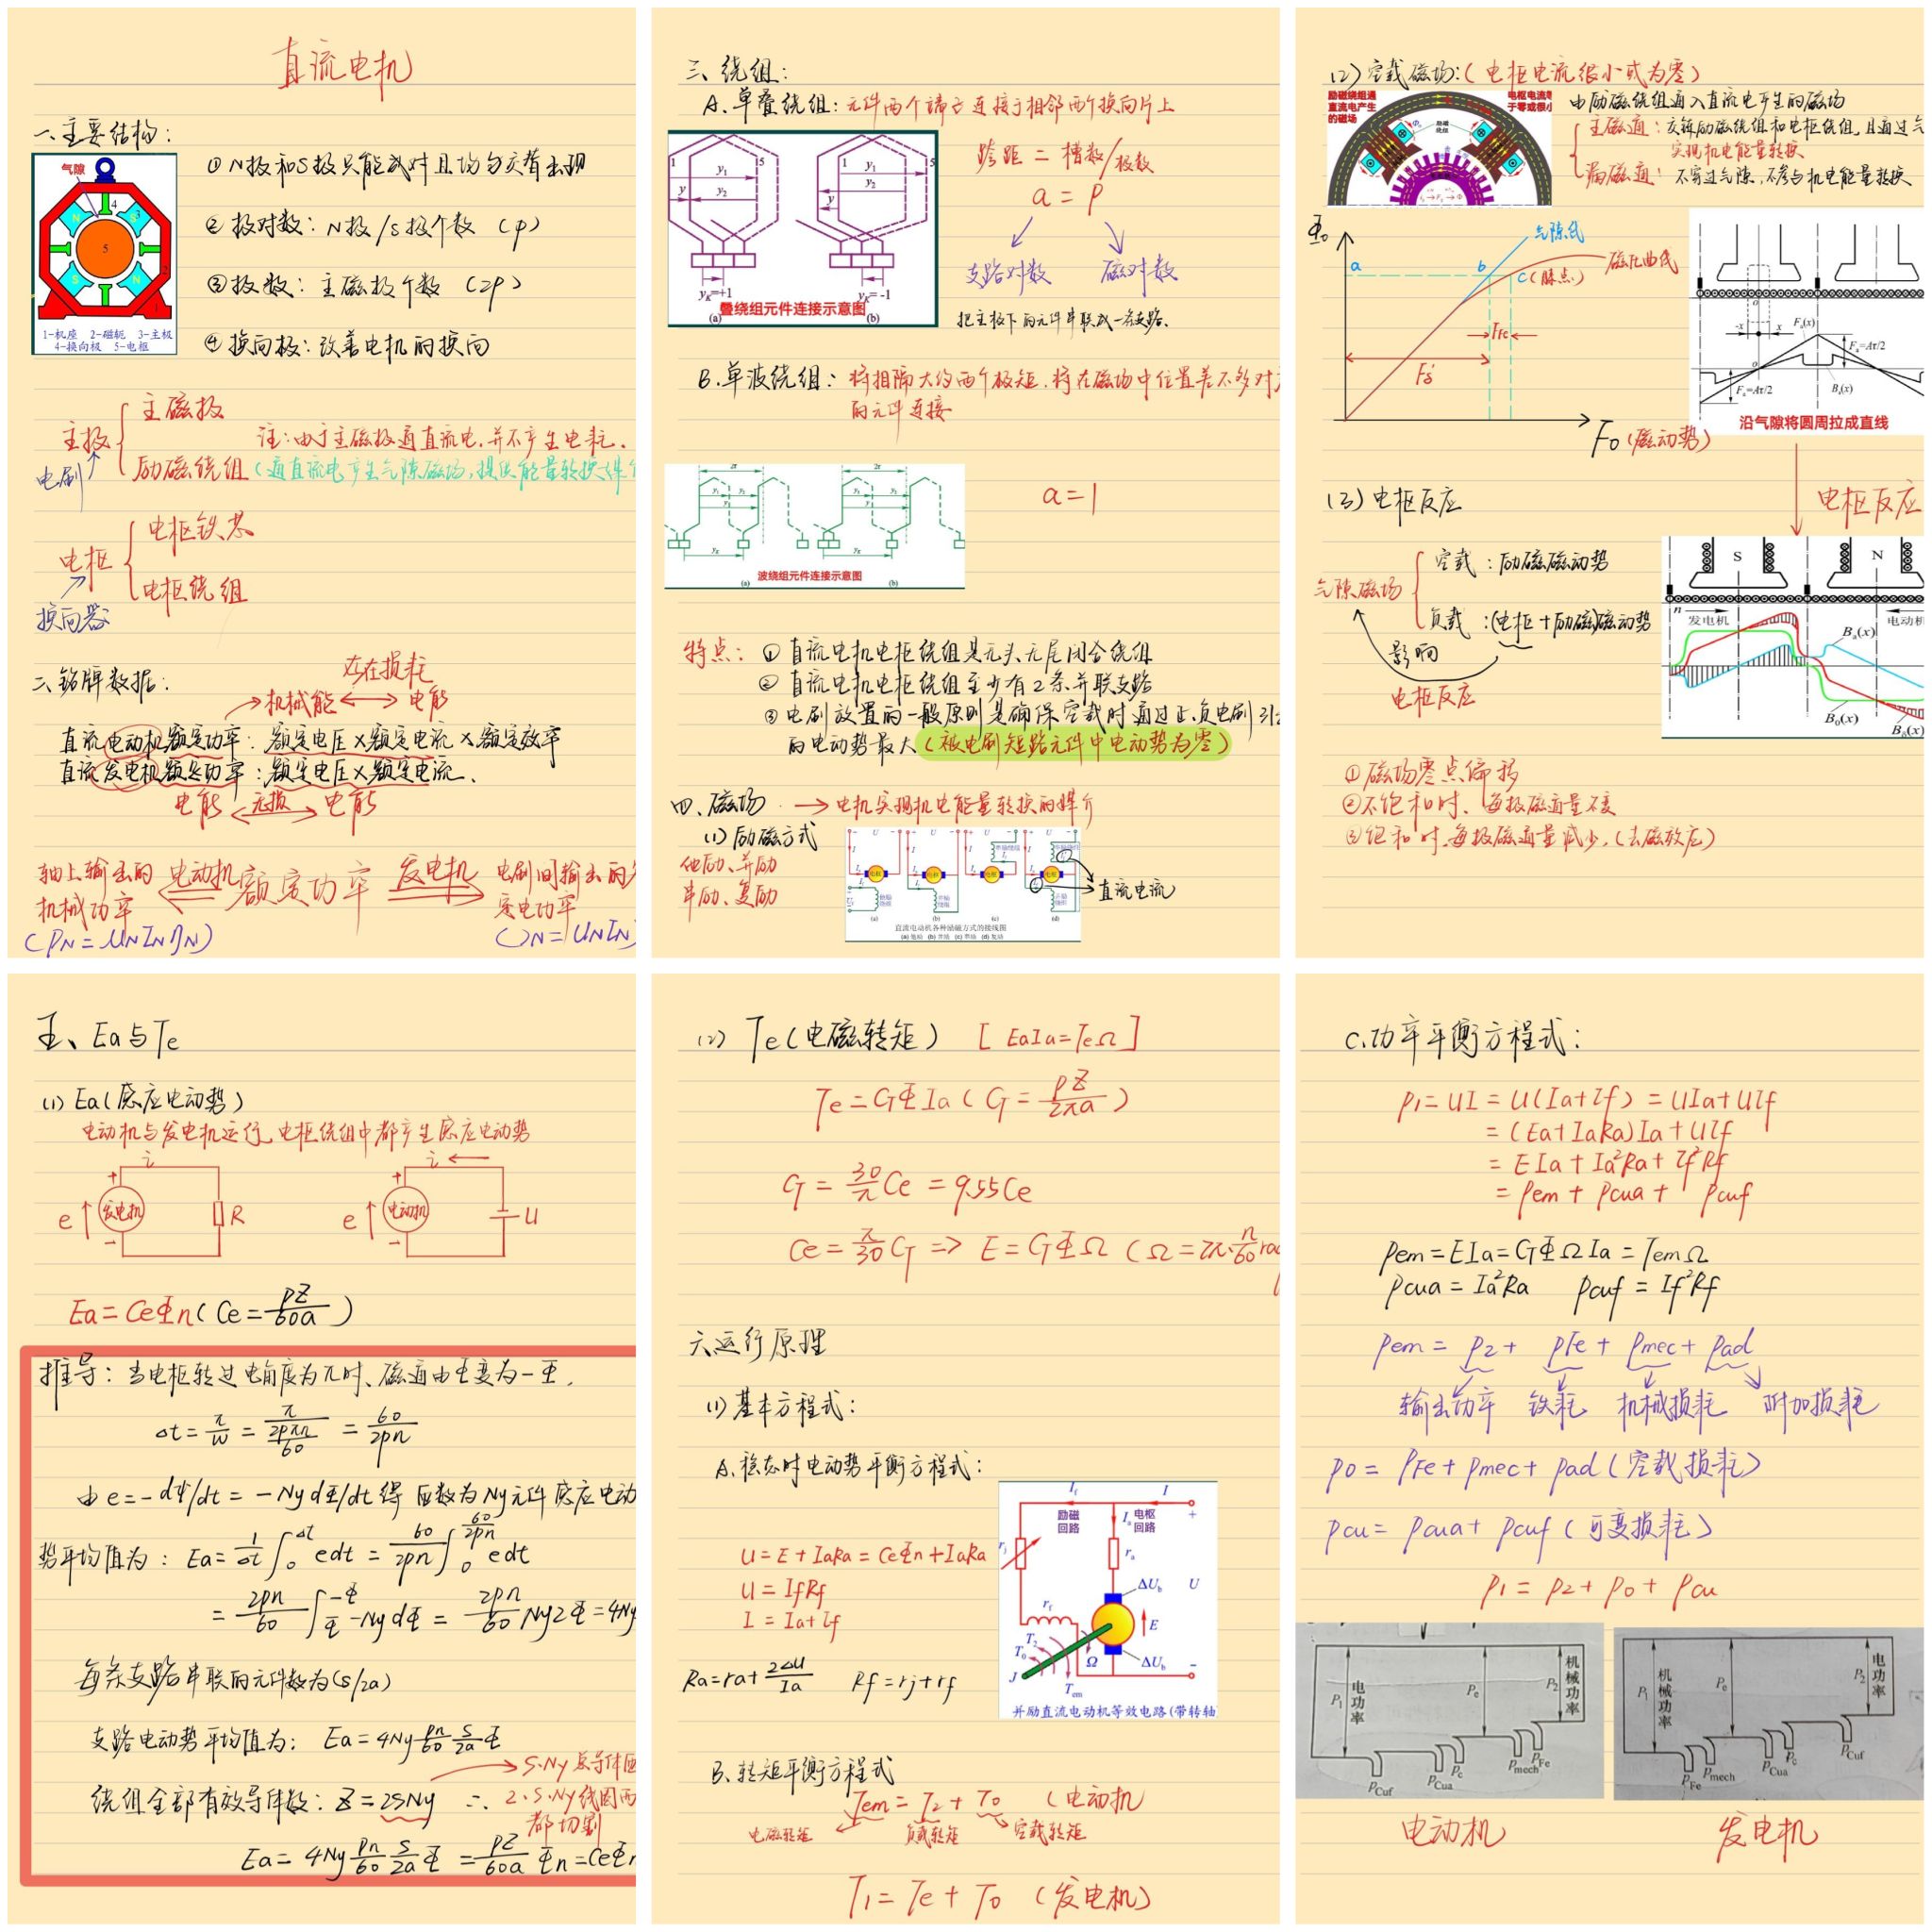 直流电机
一、主要结构:
气隙
N
S
S
N
1
2
3
4
5
1-机座 2-磁轭 3-主极
4-换向极 5-电枢
① N极和S极只能成对且均匀交替出现
② 极对数: N极/S极个数 (p)
③ 极数: 主磁极个数 (2p)
④ 换向极: 改善电机的换向
主极
主磁极
注:由于主磁极通直流电,并不产生电耗.
励磁绕组(通直流电产生气隙磁场,提供能量转换媒介
电刷
电枢
电枢铁芯
电枢绕组
换向器
二、铭牌数据:
存在损耗
机械能 ↔ 电能
直流电动机额定功率: 额定电压×额定电流×额定效率
直流发电机额定功率: 额定电压×额定电流.
电能 无损 电能
轴上输出的机械功率 电动机 额定功率 发电机 电刷间输出的
定电功率
(PN=UNINηN)
N=UNIN
三、绕组:
A.单叠绕组: 元件两个端子连接于相邻两个换向片上
1 y₁ 5 y₂ y
1 y₁ 5 y₂ y
yK=+1
yK=-1
叠绕组元件连接示意图
(a)
(b)
跨距 = 槽数/极数
a = p
支路对数
磁对数
把主极下的元件串联成一条支路.
B.单波绕组: 将相隔大约两个极矩.将在磁场中位置差不多对
的元件连接
波绕组元件连接示意图
(a)
(b)
a=1
特点: ① 直流电机电枢绕组是无头无尾闭合绕组
② 直流电机电枢绕组至少有2条并联支路
③ 电刷放置的一般原则是确保空载时通过正.负电刷引
的电动势最大(被电刷短路元件中电动势为零)
四、磁场. → 电机实现机电能量转换的媒介
(1) 励磁方式
他励、并励
串励、复励
直流电流
直流电动机各种励磁方式的接线图
(a) 他励 (b) 并励 (c) 串励 (d) 复励
(2) 空载磁场:(电枢电流很小或为零)
励磁绕组通
直流电产生
的磁场
电枢电流
于零或很小
励磁
绕组
由励磁绕组通入直流电产生的磁场
主磁通: 交链励磁绕组和电枢绕组,且通过气
实现机电能量转换
漏磁通: 不穿过气隙,不参与机电能量转换
Φ₀
a
b
c(膝点)
气隙线
磁化曲线
FFe
Fδ
F₀(磁动势)
-x x
Fa(x)
Fa=Aτ/2
Fa=Aτ/2
Ba(x)
沿气隙将圆周拉成直线
电枢反应
(3) 电枢反应
气隙磁场
空载: 励磁磁动势
负载: (电枢+励磁)磁动势
影响
电枢反应
S
N
n
发电机
电动机
Ba(x)
B₀(x)
Bδ(x)
① 磁场零点偏移
② 不饱和时、每极磁通量不变
③ 饱和时,每极磁通量减少.(去磁效应)
五、Ea与Te
(1) Ea(感应电动势)
电动机与发电机运行,电枢绕组中都产生感应电动势
i
+
e
发电机
-
R
i
+
e
电动机
-
U
Ea=CeΦn(Ce=pZ/60a)
推导: 当电枢转过电角度为π时、磁通由Φ变为-Φ,
Δt=π/ω=π/(2pπn/60)=60/2pn
由e=-dΨ/dt=-NydΦ/dt得 匝数为Ny元件感应电动
势平均值为: Ea=1/Δt∫₀^Δt edt=60/2pn∫₀^60/2pn edt
=2pn/60∫Φ^-Φ -NydΦ=2pn/60 Ny2Φ=4Ny
每条支路串联的元件数为(S/2a)
支路电动势平均值为: Ea=4Ny pn/60 S/2a Φ
绕组全部有效导体数: Z=2SNy
S.Ny总导体匝
∴ 2.S.Ny线圈两
都切割
Ea=4Ny pn/60 S/2a Φ=pZ/60a Φn=CeΦn
(2) Te(电磁转矩) [EaIa=TeΩ]
Te=CTΦIa(CT=pZ/2πa)
CT=30/π Ce=9.55Ce
Ce=π/30 CT => E=CTΦΩ (Ω=2π·n/60 rad
六、运行原理
(1) 基本方程式:
A.稳态时电动势平衡方程式:
U=E+IaRa=CeΦn+IaRa
U=IfRf
I=Ia+If
Ra=ra+2ΔU/Ia Rf=rj+rf
If
I
励磁
回路
Ia
电枢
回路
+
rj
ra
ΔUb
U
rf
E
T2
T0
ΔUb
J
Ω
Tem
-
并励直流电动机等效电路(带转轴
B.转矩平衡方程式
Tem=T2+T0 (电动机
电磁转矩
负载转矩
空载转矩
T1=Te+T0 (发电机)
C.功率平衡方程式:
p1=UI=U(Ia+If)=UIa+UIf
=(Ea+IaRa)Ia+UIf
=EIa+Ia²Ra+If²Rf
=Pem+Pcua+Pcuf
Pem=EIa=CTΦΩIa=TemΩ
Pcua=Ia²Ra Pcuf=If²Rf
Pem=P2+PFe+Pmec+Pad
输出功率 铁耗 机械损耗 附加损耗
P0=PFe+Pmec+Pad(空载损耗)
Pcu=Pcua+Pcuf(可变损耗)
P1=P2+P0+Pcu
P1
电功率
Pe
P2
机械功率
pCuf
pCua
pc
pmech
pFe
P1
机械功率
Pe
P2
电功率
pFe
pmech
pCua
pc
pCuf
电动机
发电机